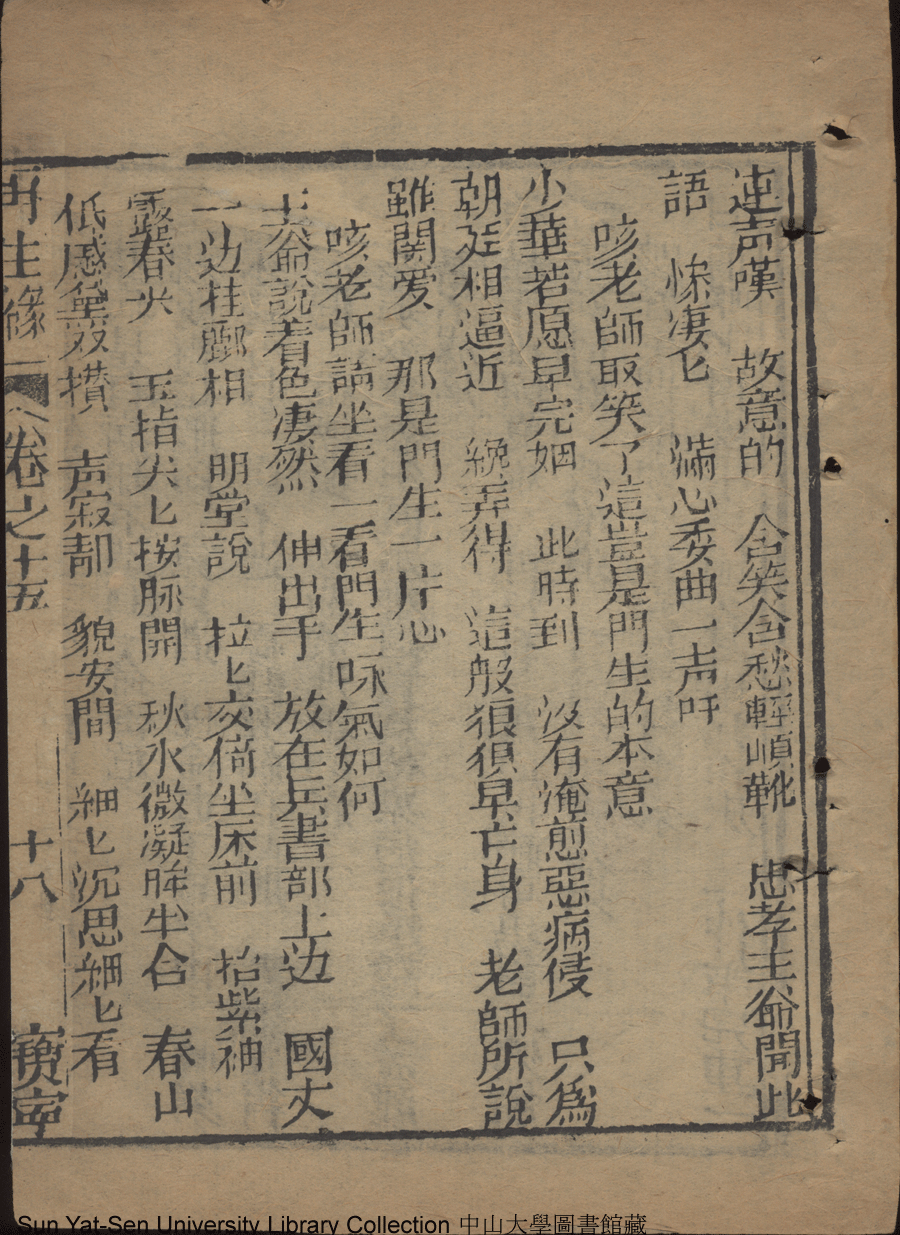 連声嘆　故意的　含笑含愁輕頓靴　忠孝王爺聞此
語　慘凄匕　滿心委曲一声吁
咳老師取笑了這豈是門生的本意
少華若愿早完姻　此時到　没有淹煎惡病侵　只為
朝廷相逼近　纔弄得　這般狼狽早亡身　老師所說
雖関爱　那是門生一片心
咳老師請坐看一看門生咏氣如何
王爺說着色凄然　伸出手　放在兵書部上边　國丈
一边在廊相　明堂說　拉匕交倚坐床前　抬紫袖
露春尖　玉指尖匕按脉開　秋水微凝眸半合　春山
低慼黛双攢　声寂静　貌安間　細匕沉思細匕看
再生緣　卷之十五　十八　寶寧
Sun Yat-Sen University Library Collection 中山大學圖書館藏